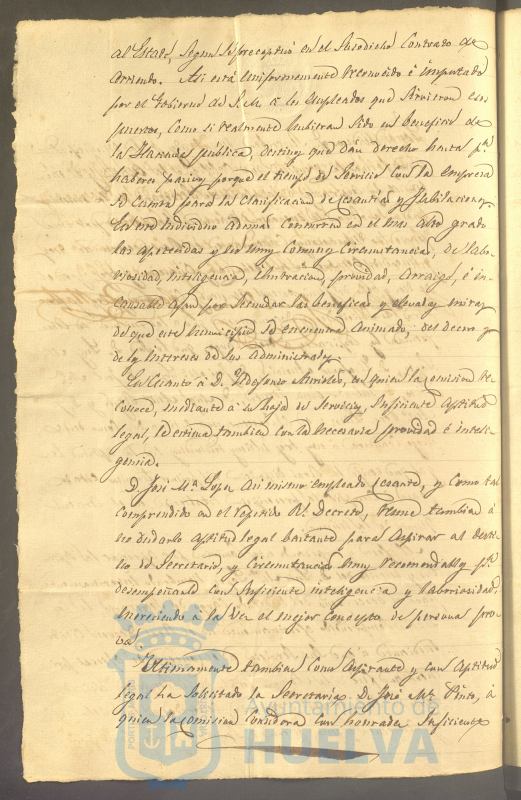 al Estado, segun se preceptuó en el susodicho Contrato de
arriendo. Asi está uniformemente reconocido é imputado
por el Gobierno de S.M. á los empleados que sirvieron esos
puestos, como si realmente hubieran sido en beneficio de
la Hacienda pública, destinos que dan derecho hasta pª
haberes pasivos porque el tiempo de servicio con la empresa
se cuenta para la clasificacion de Cesantias y Jubilaciones
En este individuo ademas concurren en el mas alto grado
las apetecidas y no muy comunes circunstancias, de labo-
riosidad, inteligencia, ilustracion, providad, arraigo, é in-
cansable afan por secundar las beneficas y elevadas miras
de que este Municipio se encuentra animado, del decoro y
de los intereses de sus administrados.
En cuanto á D. Ildefonso en quien la comision re-
conoce, mediante á su hoja de servicios, suficiente aptitud
legal, le estima tambien con la necesaria providad é inteli-
gencia.
D. José Mª Lopez asi mismo empleado cesante, y como tal
comprendido en el repetido Rl. Decreto, reune tambien á
no dudarlo aptitud legal bastante para aspirar al desti-
no de Secretario, y circunstancias muy recomendables pª
desempeñarlo con suficiente inteligencia y laboriosidad,
mereciendo á la vez el mejor concepto de persona pro-
va.
Ultimamente tambien como aspirante y con aptitud
legal ha solicitado la Secretaria D. José Mz Pinto, á
quien la comision considera con honradez suficiente
Ayuntamiento de
HUELVA